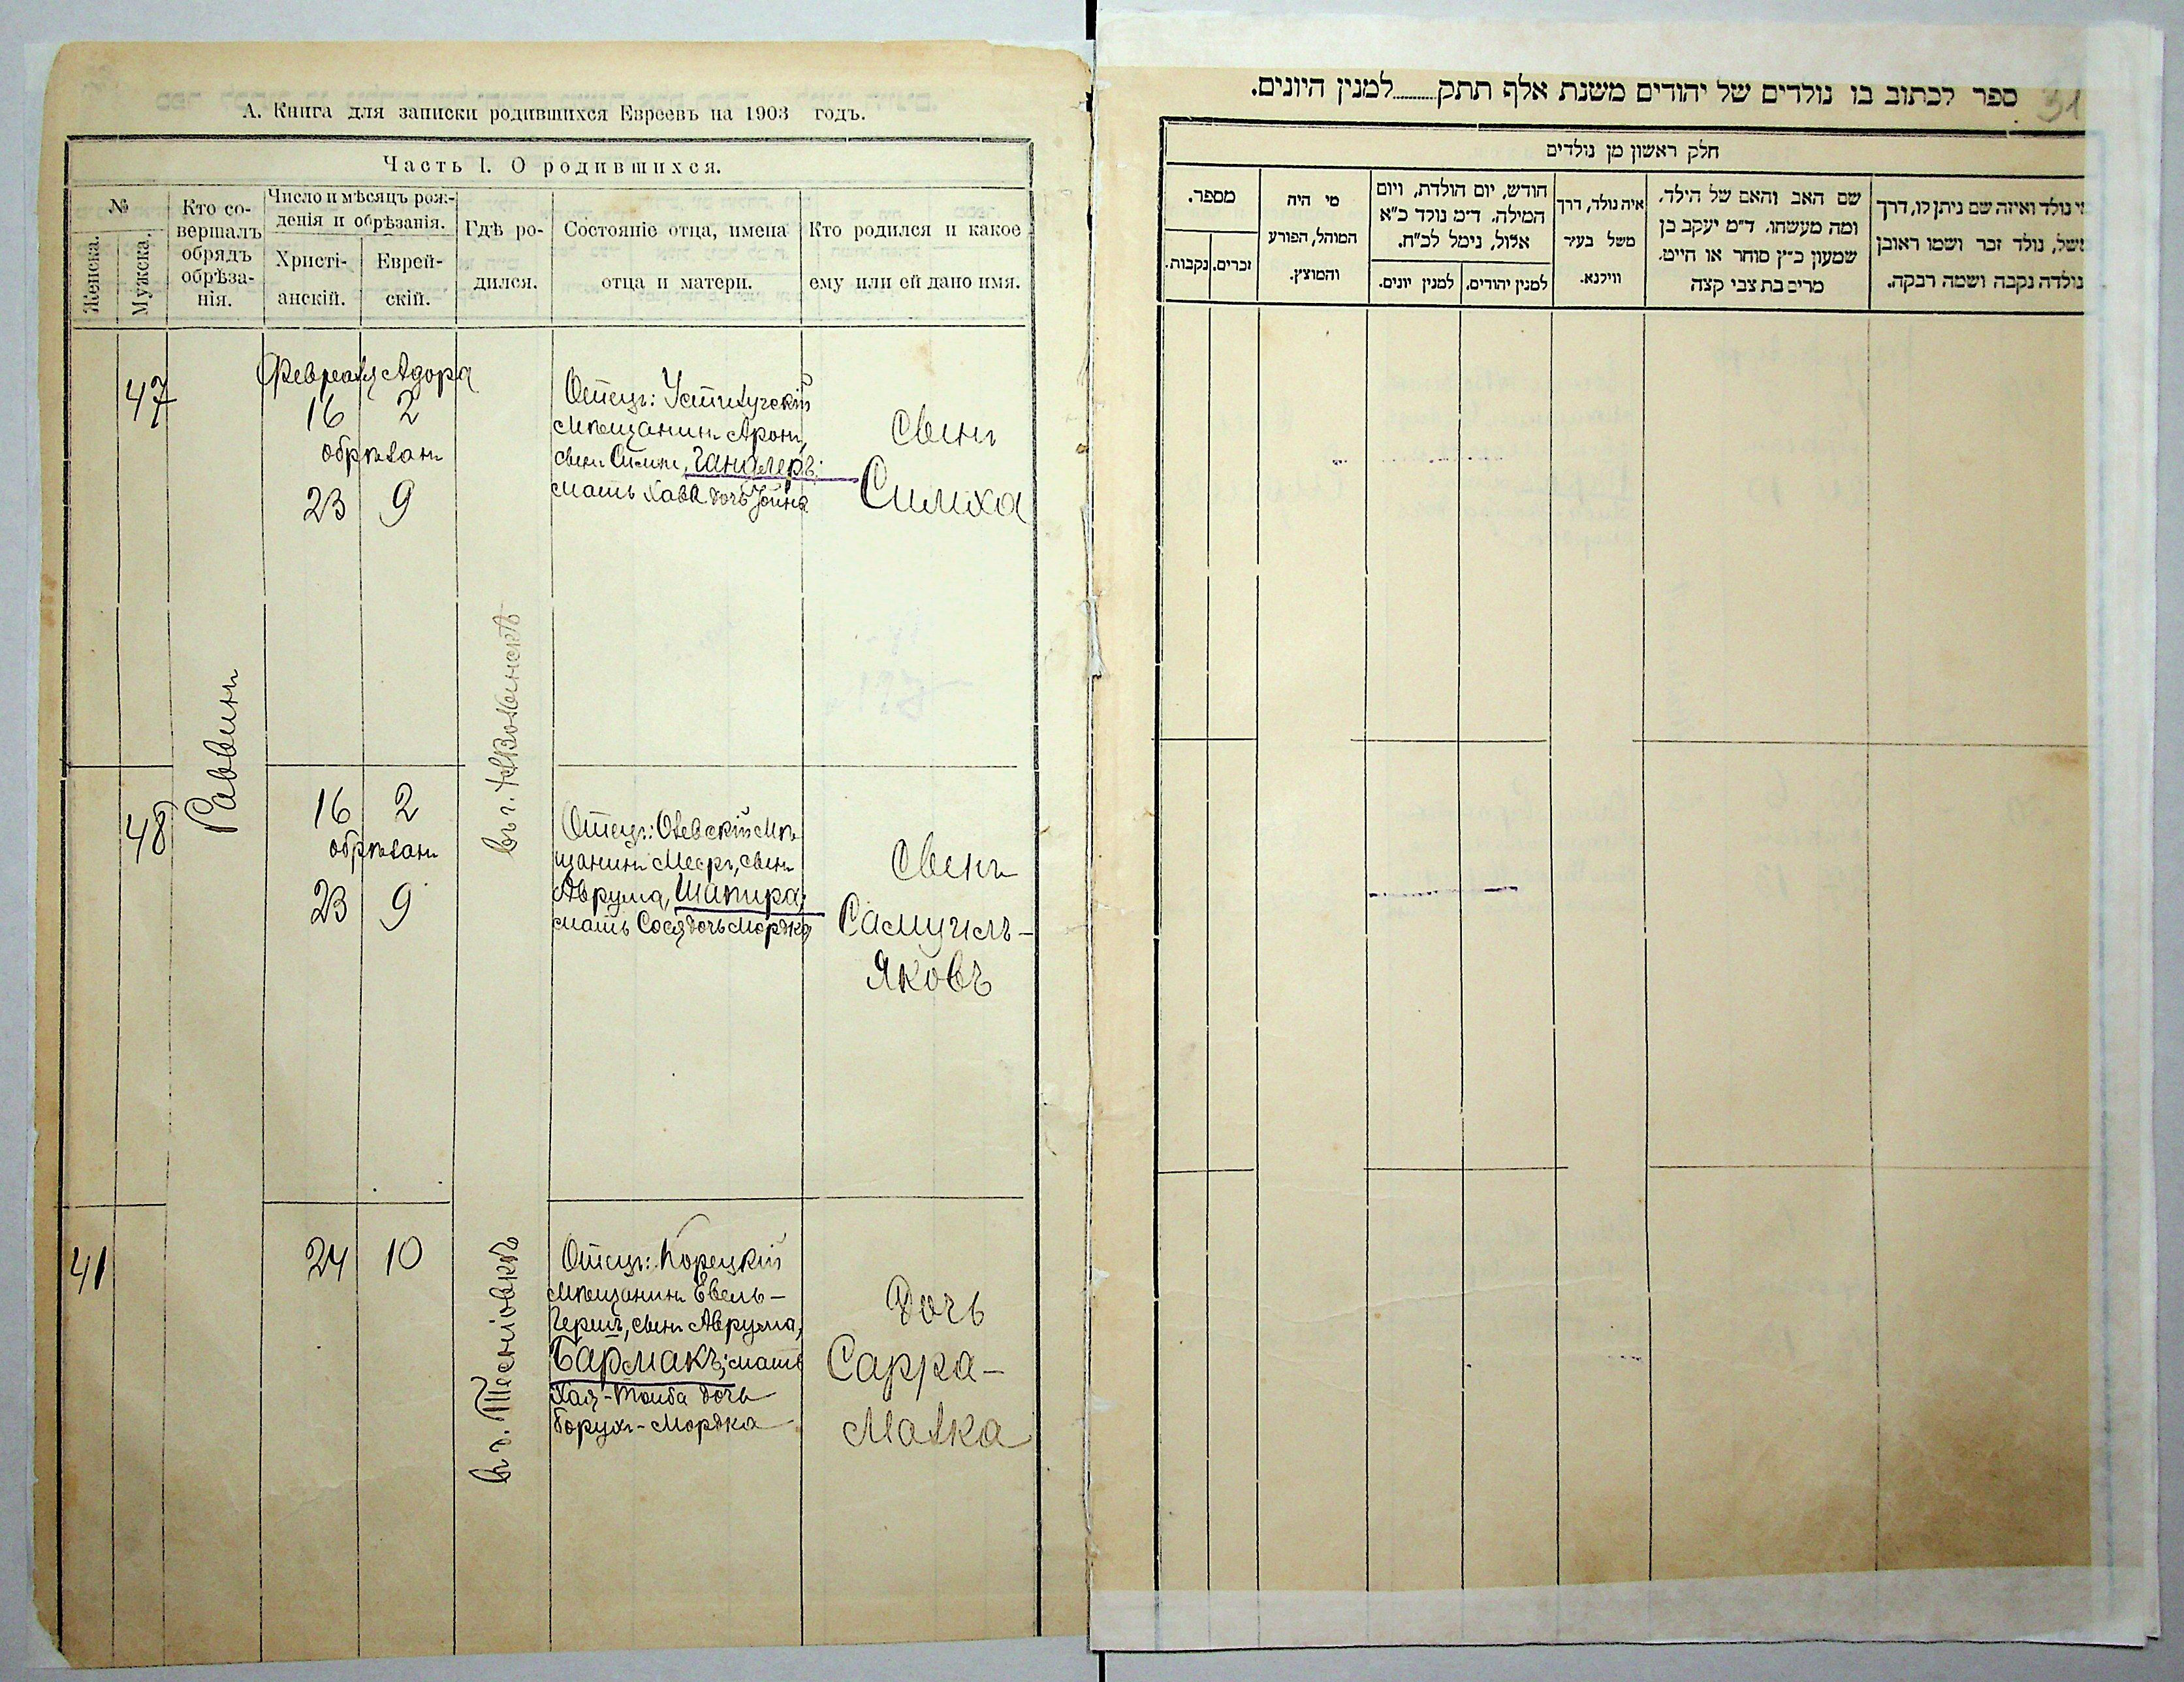 А. Книга для записки родившихся Евреевъ на 1903 годъ.
Часть I. О родившихся.
№
Женска.
Мужска.
Кто со-
вершалъ
обрядъ
обрѣза-
нія.
Число и мѣсяцъ рож-
денія и обрѣзанія.
Христі-
анскій.
Еврей-
скій.
Гдѣ ро-
дился.
Состояніе отца, имена
отца и матери.
Кто родился и какое
ему или ей дано имя.
47
Раввинъ
Февраля Адора
16 2
обрѣзанъ
23 9
въ г.
Отецъ:
мѣщанинъ Аронъ,
сынъ
мать Хава дочь
сынъ
Симха
48
16 2
обрѣзанъ
23 9
Отецъ: Олевскій мѣ
щанинъ Мееръ, сынъ
Аврума, Шапира;
мать Сося дочь Мордка
сынъ
Самуилъ-
Яковъ
41
24 10
въ д. Тесніовкѣ
Отецъ: Корецкій
мѣщанинъ Евель-
Гершъ, сынъ Аврума,
Бармакъ; мать
Хая-Тоиба дочь
Борух-Мордка
дочь
Сарра-
Малка
ספר לכתוב בו נולדים של יהודים משנת אלף תתק........למנין היונים.
31
חלק ראשון מן נולדים
מספר.
זכרים.
נקבות.
מי היה
המוהל, הפורע
והמוצץ.
חודש, יום הולדת, ויום
המילה. ד״מ נולד כ״א
אלול, נימל לכ״ח.
למנין יונים.
למנין יהודים.
איה נולד, דרך
משל בעיר
ווילנא.
שם האב והאם של הילד,
ומה מעשהו. ד״מ יעקב בן
שמעון כ״ץ סוחר או חייט,
מרים בת צבי קצה
מי נולד ואיזה שם ניתן לו, דרך
משל, נולד זכר ושמו ראובן
נולדה נקבה ושמה רבקה.